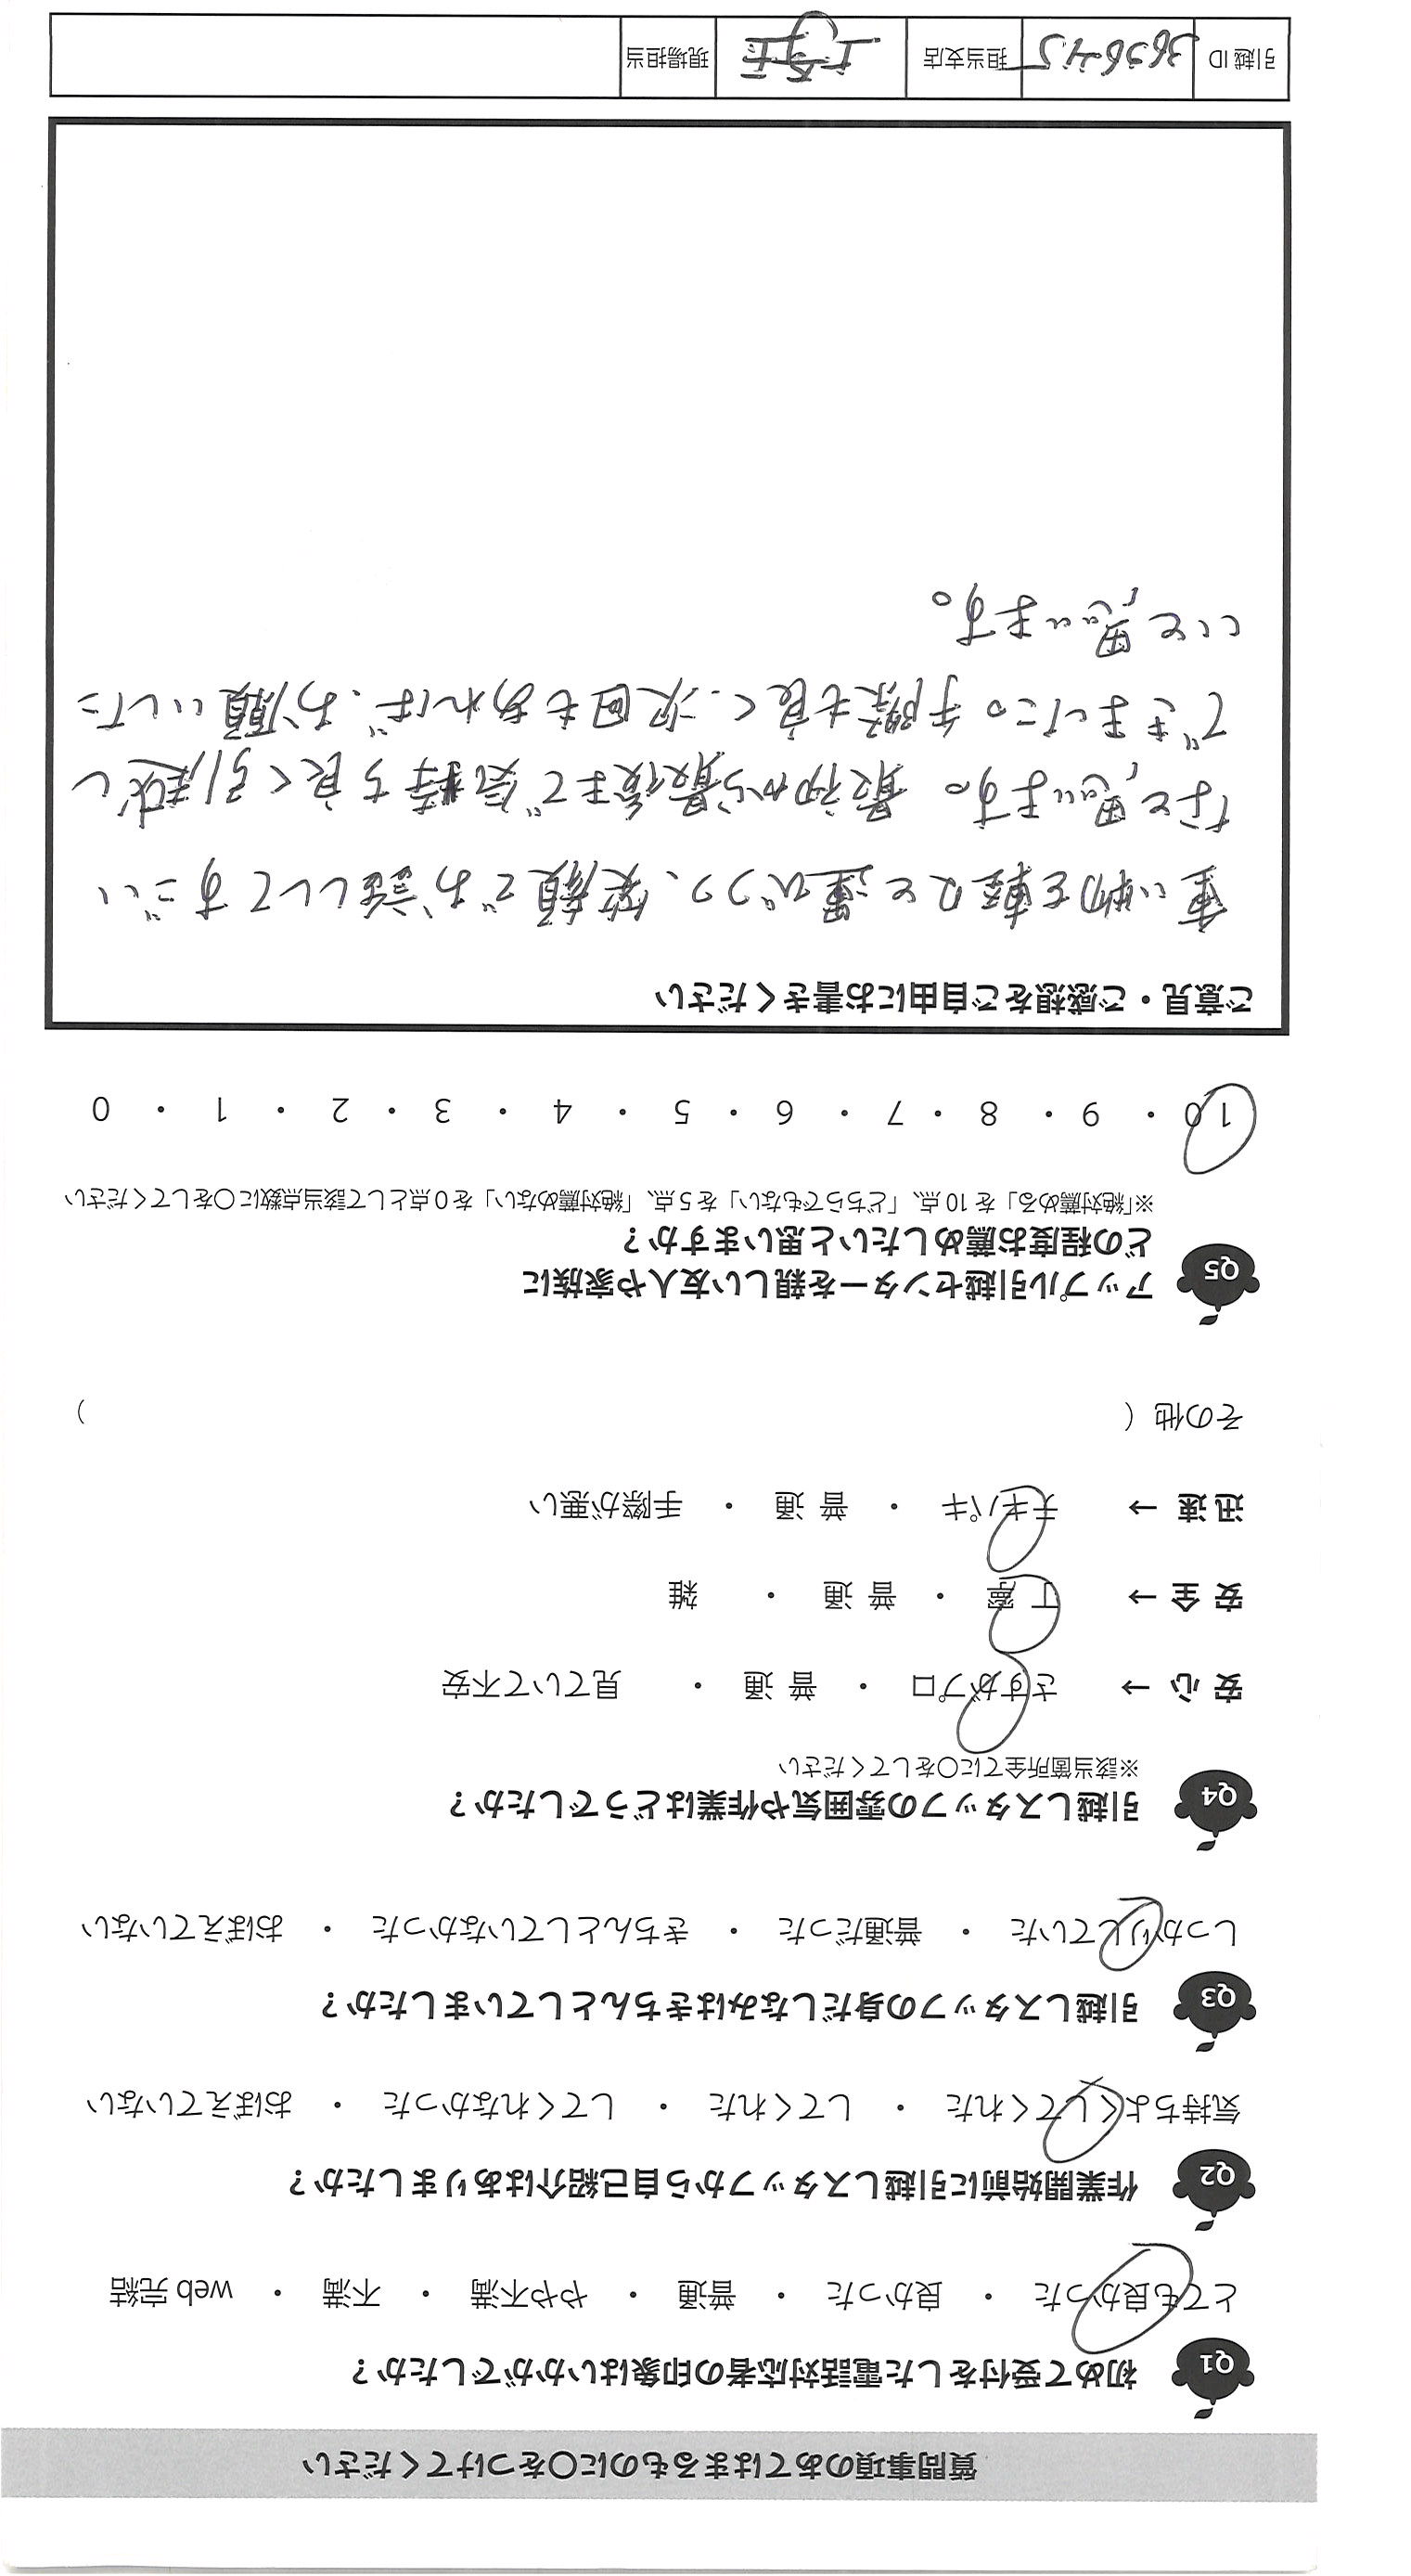 質問事項のあてはまるものに〇をつけてください
Q1 初めて受付をした電話対応者の印象はいかがでしたか？
とても良かった ・ 良かった ・ 普通 ・ やや不満 ・ 不満 ・ web 完結
Q2 作業開始前に引越しスタッフから自己紹介はありましたか？
気持ちよくしてくれた ・ してくれた ・ してくれなかった ・ おぼえていない
Q3 引越しスタッフの身だしなみはきちんとしていましたか？
しっかりとしていた ・ 普通だった ・ きちんとしていなかった ・ おぼえていない
Q4 引越しスタッフの雰囲気や作業はどうでしたか？
※該当箇所全てに〇をしてください
安 心 → さすがプロ ・ 普 通 ・ 見ていて不安
安 全 → 丁 寧 ・ 普 通 ・ 雑
迅 速 → テキパキ ・ 普 通 ・ 手際が悪い
その他（ ）
Q5 アップル引越センターを親しい友人や家族に
どの程度お薦めしたいと思いますか？
※「絶対薦める」を 10 点、「どちらでもない」を 5 点、「絶対薦めない」を 0 点として該当点数に〇をしてください
10 ・ 9 ・ 8 ・ 7 ・ 6 ・ 5 ・ 4 ・ 3 ・ 2 ・ 1 ・ 0
ご意見・ご感想をご自由にお書きください
重い物を軽々と運びつつ、笑顔でお話ししてすごい
なと思います。最初から最後まで気持ち良く引越し
できました。手際も良く、次回もあれば、お願いした
いと思います。
引越 ID 担当支店 現場担当